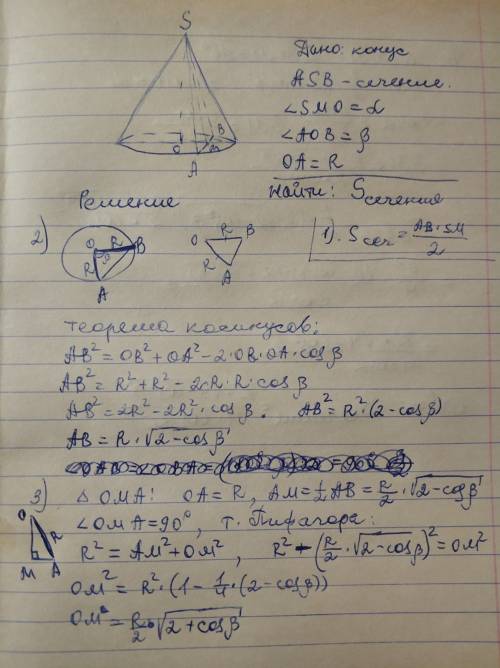 S
Дано: конус
ASB - сечение.
∠SMO = α
∠AOB = β
OA = R
Найти: Sсечения
O
A
B
m
Решение
2)
O
R
B
R
β
A
O
R
B
R
A
1). Sсеч = AB·SM/2
теорема косинусов:
AB² = OB² + OA² - 2·OB·OA·cos β
AB² = R² + R² - 2·R·R·cos β
AB² = 2R² - 2R²·cos β. AB² = R²·(2-cos β)
AB = R·√(2-cos β)
3) △ OMA: OA = R, AM = ½ AB = R/2·√(2-cos β)
∠OMA = 90°, т. Пифагора:
O
R
M
A
R² = AM² + OM², R² - (R/2·√(2-cos β))² = OM²
OM² = R²·(1 - 1/4·(2-cos β))
OM = R/2·√(2+cos β)